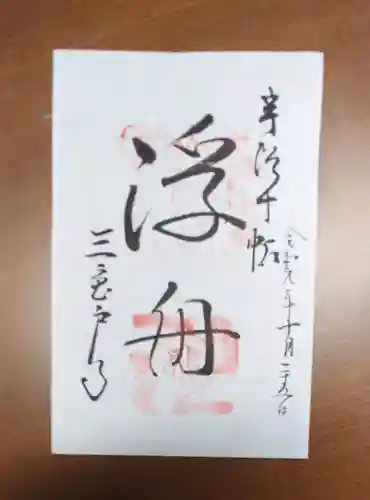 宇治十帖
令和元年十月二十五日
浮舟
三室戸寺